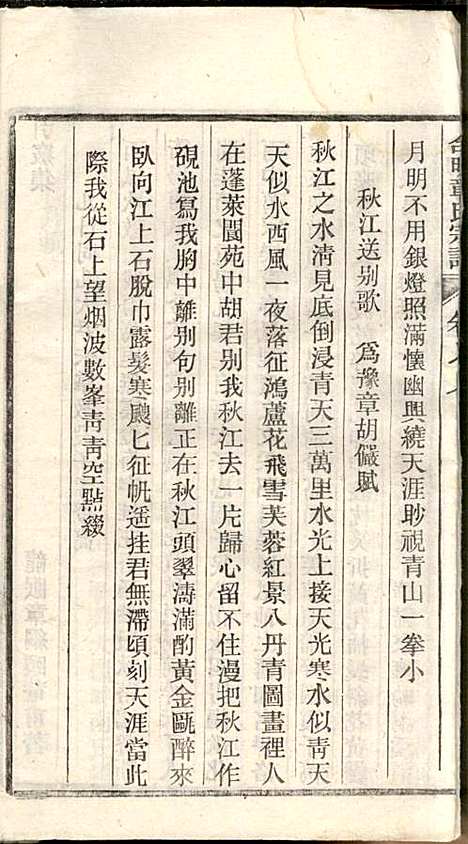 合肥章氏宗譜
月明不用銀燈照滿懷幽興繞天涯眇視青山一拳小
秋江送别歌　爲豫章胡儼賦
秋江之水清見底倒浸青天三萬里水光上接天光寒水似靑天
天似水西風一夜落征鴻蘆花飛雪芙蓉紅景入丹青圖畫裡人
在蓬萊閬苑中胡君别我秋江去一片歸心留不住漫把秋江作
硯池寫我胸中離别句别離正在秋江頭翠濤滿酌黄金甌醉來
臥向江上石脫巾露髮寒颼匕征帆遥挂君無滯頃刻天涯當此
際我從石上望烟波數峯靑青空點綴